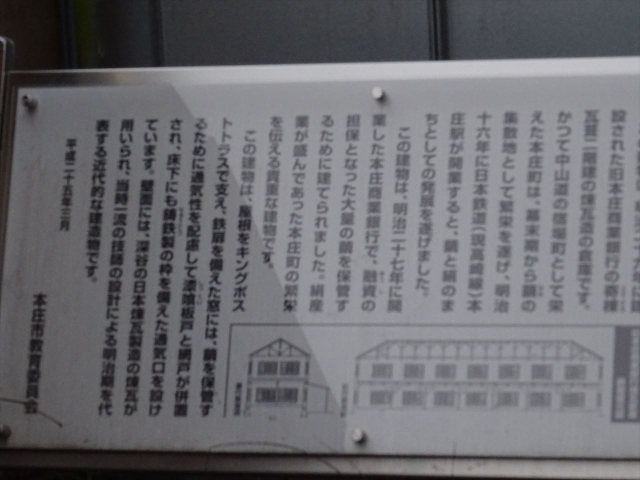 設された旧本庄商業銀行の寄棟
瓦葺二階建の煉瓦造の倉庫です。
かつて中山道の宿場町として栄
えた本庄町は、幕末期から繭の
集散地として繁栄を遂げ、明治
十六年に日本鉄道（現高崎線）本
庄駅が開業すると、繭と絹のま
ちとしての発展を遂げました。
この建物は、明治二十七年に開
業した本庄商業銀行で、融資の
担保となった大量の繭を保管す
るために建てられました。絹産
業が盛んであった本庄町の繁栄
を伝える貴重な建物です。
この建物は、屋根をキングポス
トトラスで支え、鉄扉を備えた窓には、繭を保管す
るために通気性を配慮して漆喰板戸と網戸が併置
され、床下にも鋳鉄製の枠を備えた通気口を設け
ています。壁面には、深谷の日本煉瓦製造の煉瓦が
用いられ、当時一流の技師の設計による明治期を代
表する近代的な建造物です。
平成二十五年三月
本庄市教育委員会